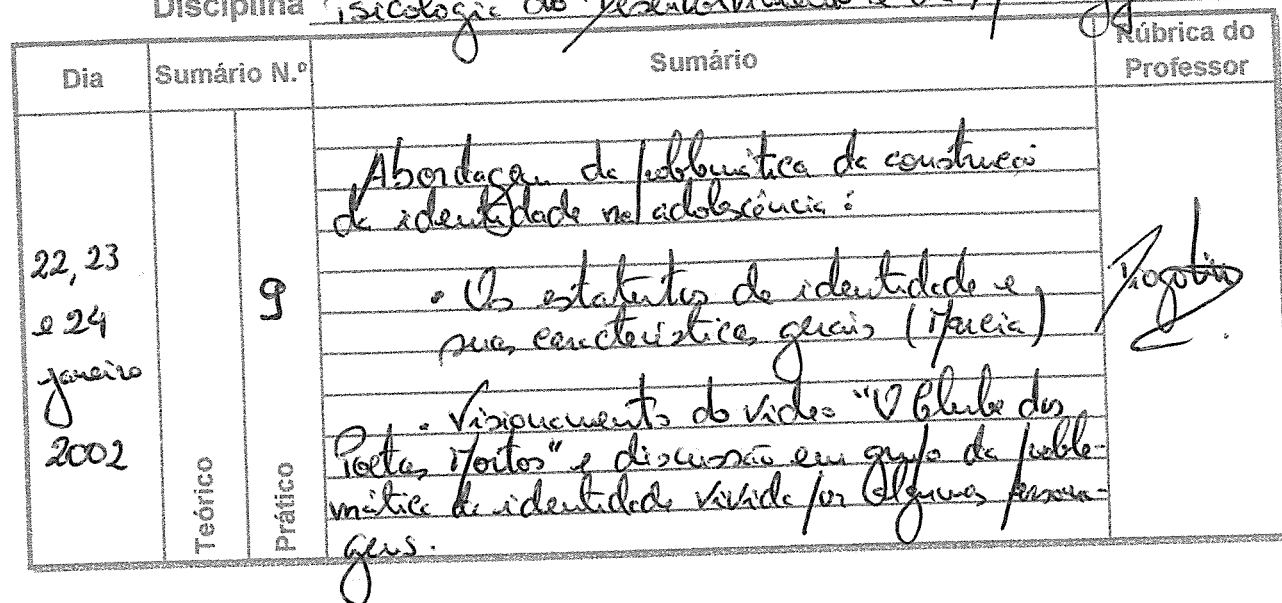 Disciplina Psicologia do Desenvolvimento e da
Dia
Sumário N.º
Sumário
Rúbrica do
Professor
22, 23
e 24
janeiro
2002
Teórico
9
Prático
Abordagem da problemática da construção
da identidade na adolescência:
• Os estatutos de identidade e
suas características gerais (Marcia)
• Visionamento do vídeo "O Clube dos
Poetas Mortos" e discussão em grupo da proble-
mática da identidade vivida por algumas persona-
gens.